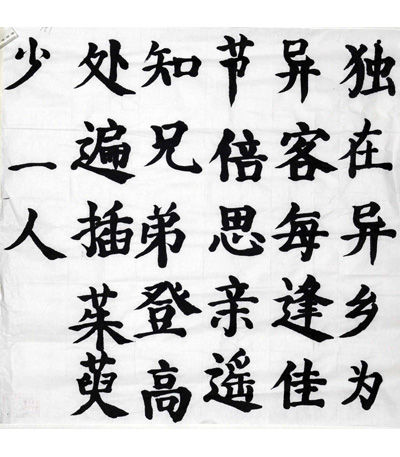 独在异乡为
异客每逢佳
节倍思亲遥
知兄弟登高
处遍插茱萸
少一人